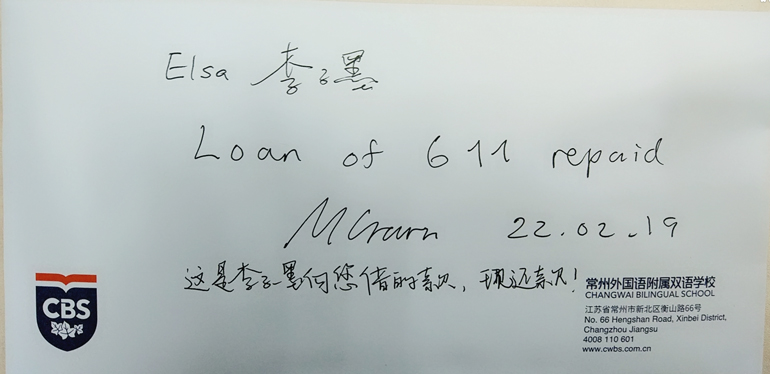 Elsa 李子墨
Loan of 611 repaid
22.02.19
这是李子墨向您借的款，现还款！
CBS
常州外国语附属双语学校
CHANGWAI BILINGUAL SCHOOL
江苏省常州市新北区衡山路66号
No. 66 Hengshan Road, Xinbei District,
Changzhou Jiangsu
4008 110 601
www.cwbs.com.cn